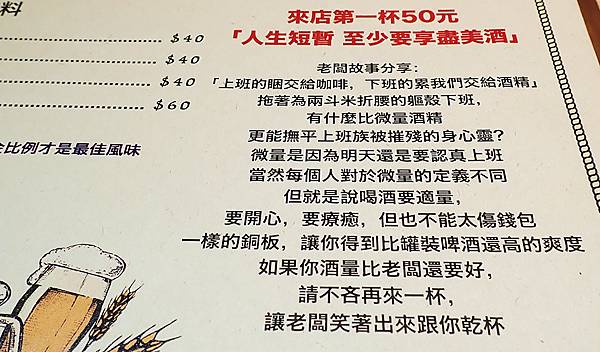 料
$40
$40
$40
$60
比例才是最佳風味
來店第一杯50元
『人生短暫 至少要享盡美酒』
老闆故事分享：
「上班的睏交給咖啡，下班的累我們交給酒精」
拖著為兩斗米折腰的軀殼下班，
有什麼比微量酒精
更能撫平上班族被摧殘的身心靈？
微量是因為明天還是要認真上班
當然每個人對於微量的定義不同
但就是說喝酒要適量，
要開心，要療癒，但也不能太傷錢包
一樣的銅板，讓你得到比罐裝啤酒還高的爽度
如果你酒量比老闆還要好，
請不吝再來一杯，
讓老闆笑著出來跟你乾杯